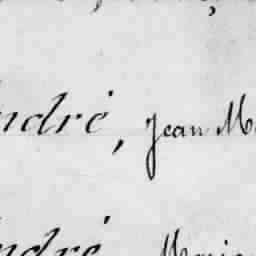 ndré, Jean M
ndré, Marie